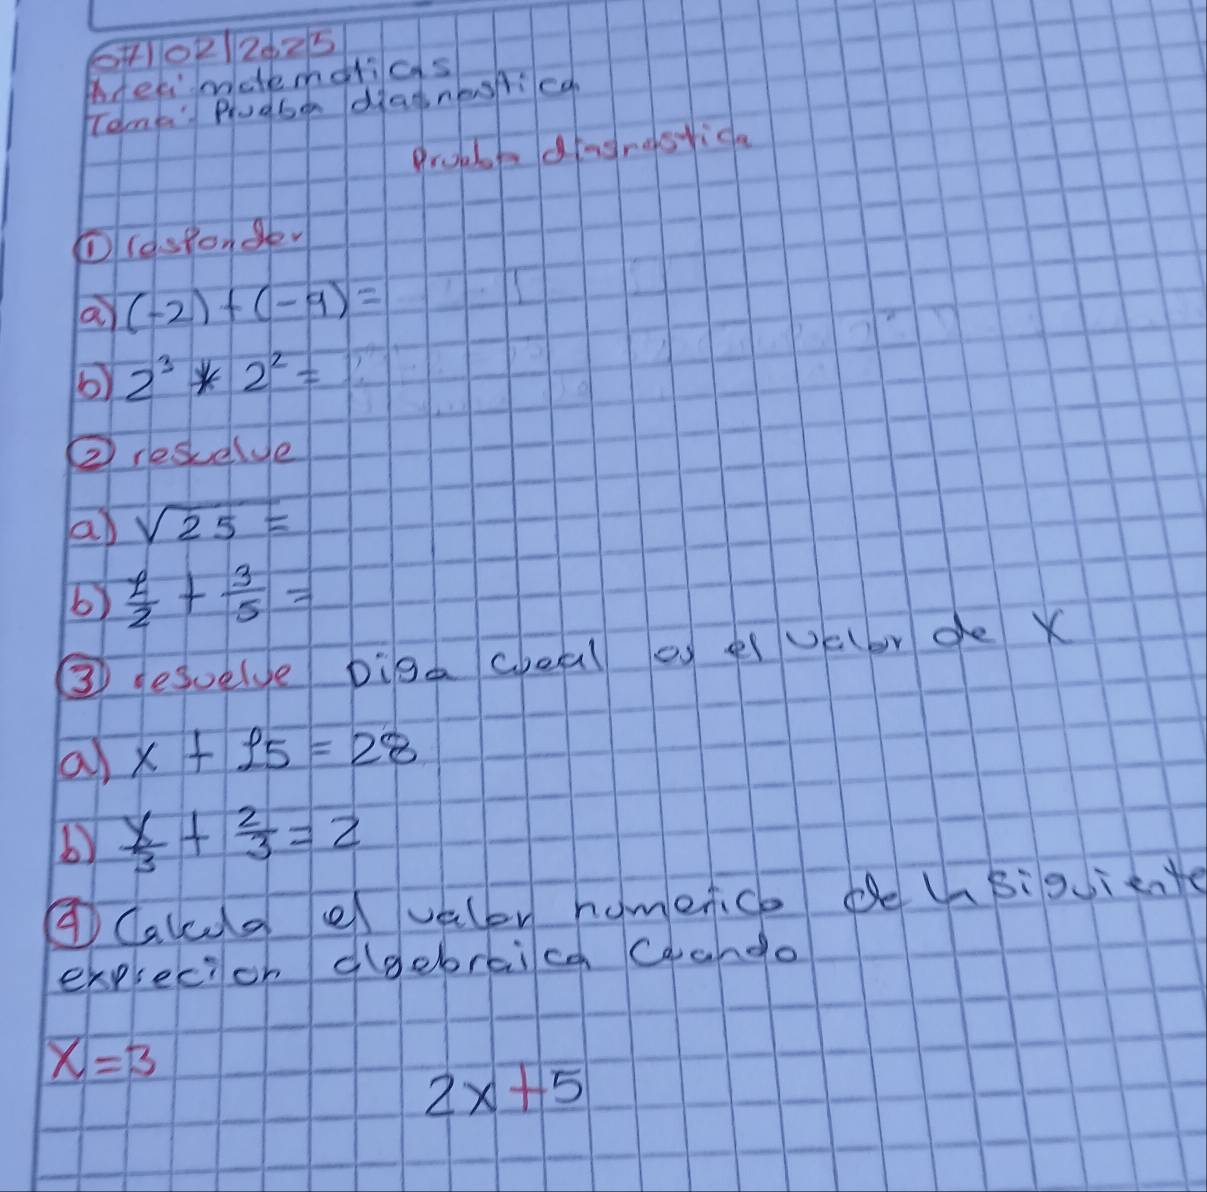 07/02/2025
Area: matematicas
Tema: Prueba diagnostica
Prueba diagnostica
① responder
a) (-2) + (-4) =
b) 2³ * 2² =
② resuelve
a) √25 =
b) 1/2 + 3/5 =
③ resuelve Diga cueal es el valor de X
a) x + 15 = 28
b) x/3 + 2/3 = 2
④ Calcula el valor numerico de la siguiente
exprecion algebraica cuando
X = 3
2x + 5